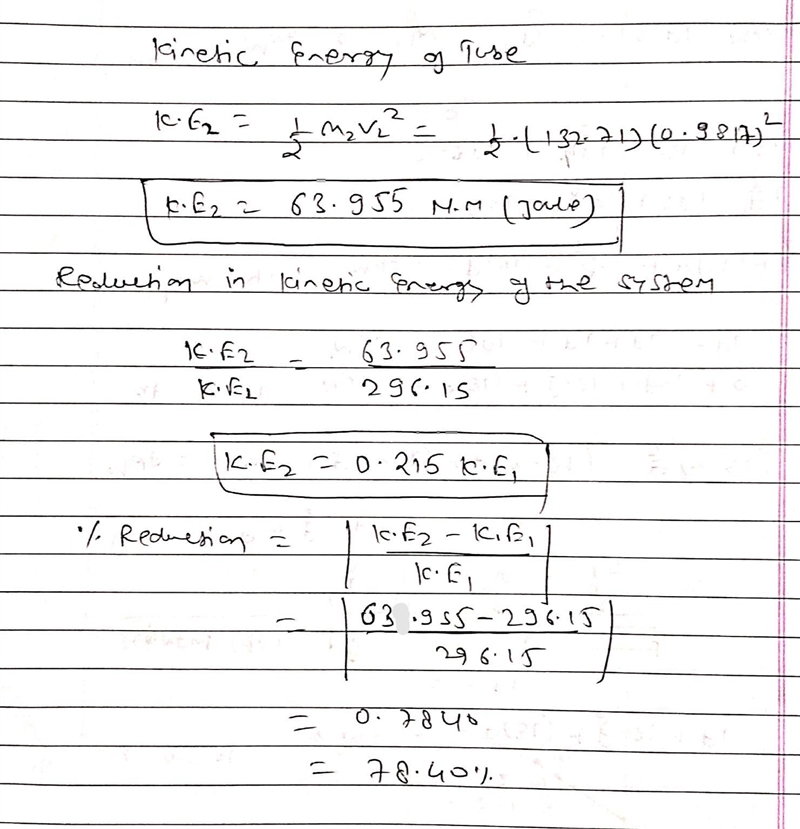 Kinetic Energy of Tube
K.E2 = 1/2 m2v2^2 = 1/2 . (132.71) (0.9817)^2
K.E2 = 63.955 N.M (Joule)
Reduction in kinetic Energy of the system
K.E2 / K.E2 = 63.955 / 296.15
K.E2 = 0.215 K.E1
% Reduction = | K.E2 - K.E1 / K.E1 |
= | 63.955 - 296.15 / 296.15 |
= 0.7840
= 78.40%